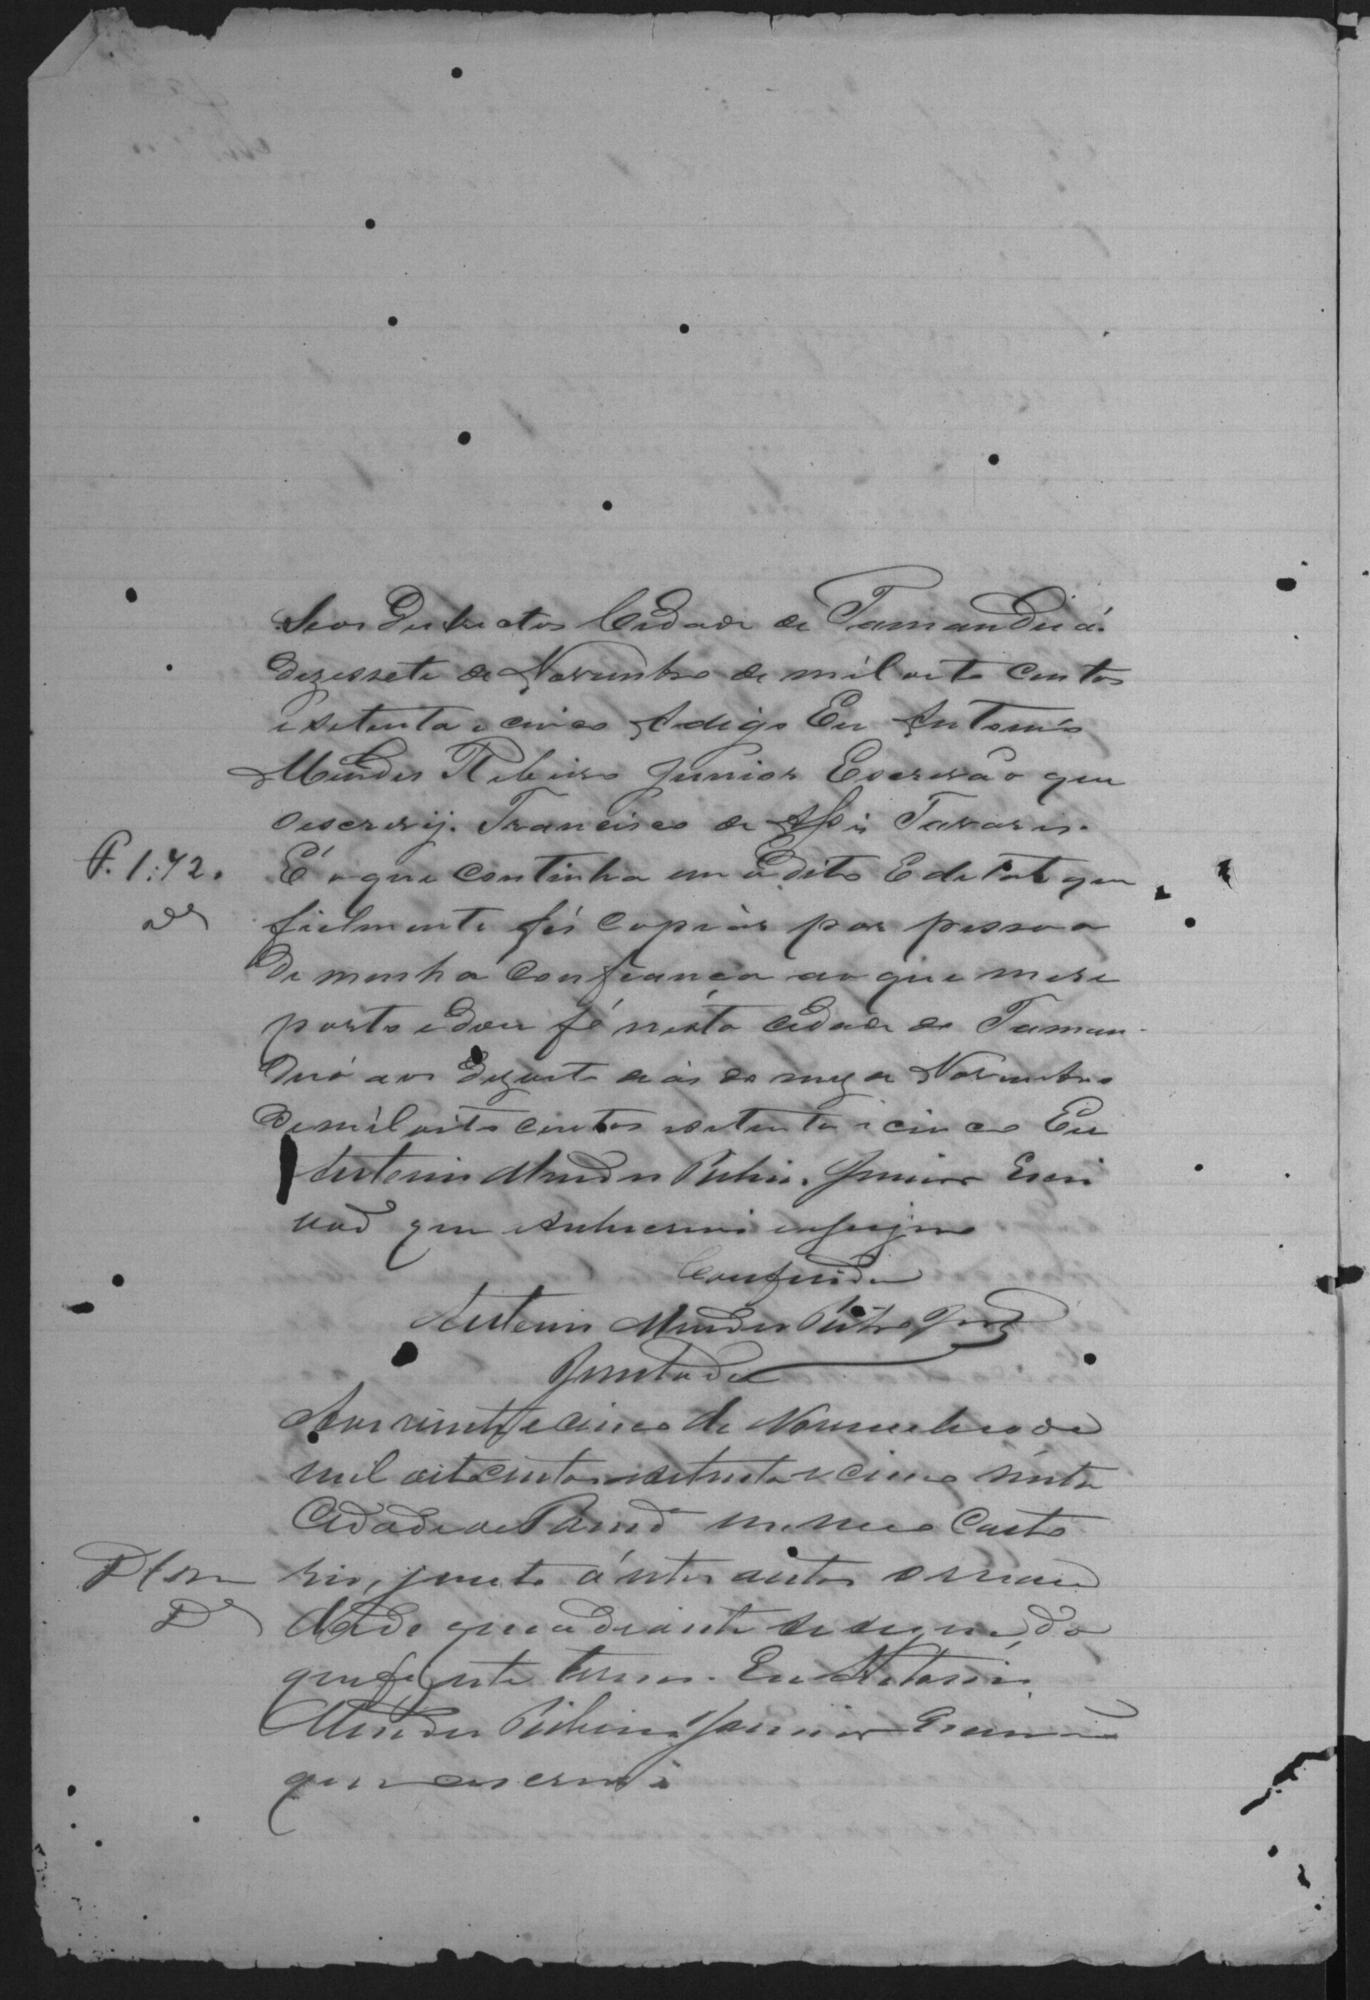 Seos Districtos Cidade de Tamanduá
dezessete de Novembro de mil oito centos
e setenta e cinco Edigo Eu Antonio
Mendes Ribeiro Junior Escrivão que
oescrevy. Francisco de Assis Tavares.
P. 1:72. É o que continha em o dito Edital que
fielmente fis copiar por pessoa
de minha confiança ao que me re
porto edou fé nésta cidade de Taman-
duá aos dezoito dias do mez de Novembro
de mil oito centos esetenta e cinco Eu
Antonio Mendes Ribeiro Junior Escri
vaõ que subscrevi easigno
Conferido
Antonio Mendes Ribro Jor
Juntada
Aos vinte e cinco de Novembro de
mil oitocentos esetenta e cinco nésta
Cidade de em meo Carto
rio, junto á estes autos o man
dado que adiante se segue do
que fiz este termo. Eu Antonio
Mendes Ribeiro Junior Escrivão
que oescrevi